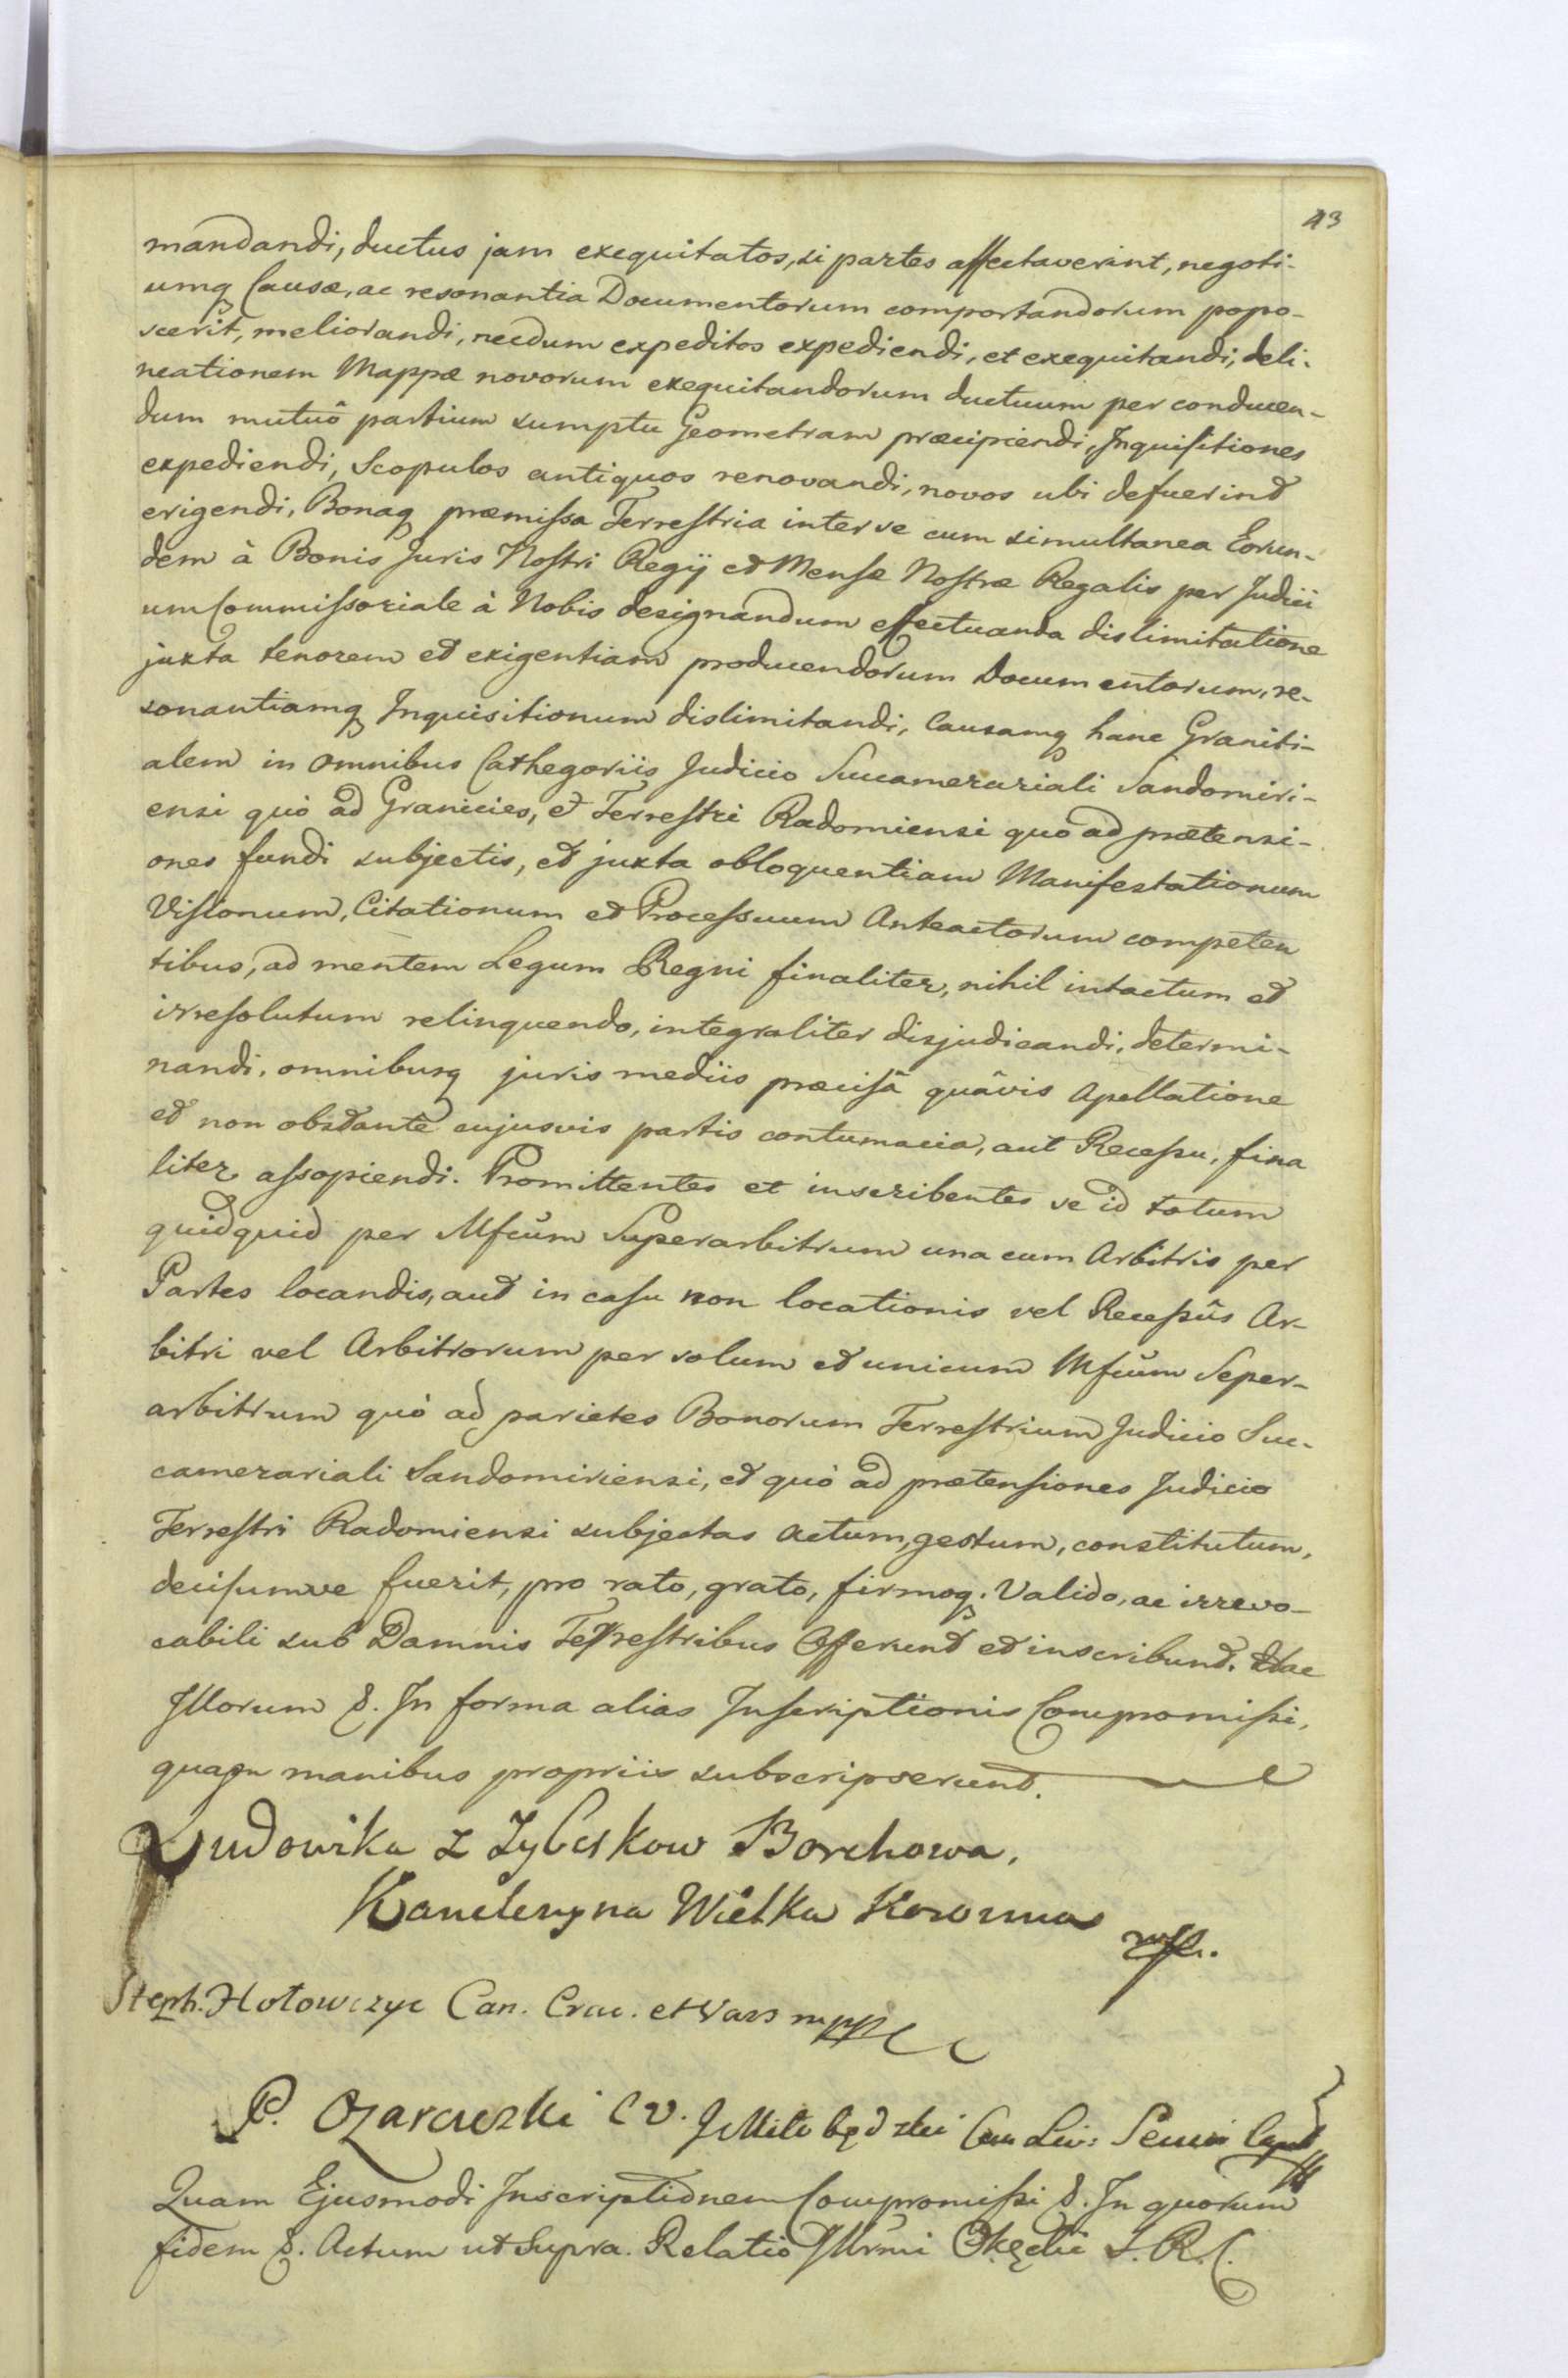 43
mandandi, ductus jam exequitatos, si partes affectaverint, negoti-
umq Causæ, ac resonantia Documentorum comportandorum popo-
scerit, meliorandi, necdum expeditos expediendi, et exequitandi, deli-
neationem Mappæ novorum exequitandorum ductuum per conducen-
dum mutuô partium sumptu Geometram præcipiendi, Inquisitiones
expediendi, Scopulos antiquos renovandi, novos ubi defuerint
erigendi, Bonaq præmissa Terrestria inter se cum simultanea Eorun-
dem à Bonis Juris Nostri Regij et Mensæ Nostræ Regalis per Judici
um Commissoriale à Nobis designandum effectuanda dislimitatione
juxta tenorem et exigentiam producendorum Documentorum, re-
sonantiamq Inquisitionum dislimitandi, Causamq hanc Graniti-
alem in omnibus Cathegoriis Judicio Succamerariali Sandomiri-
ensi quò ad Granicies, et Terrestri Radomiensi quo ad prætensi-
ones fundi subjectis, et juxta obloquentiam Manifestationum
Visionum, Citationum et Processuum Anteactorum competen
tibus, ad mentem Legum Regni finaliter, nihil intactum et
irresolutum relinquendo, integraliter disjudicandi, determi-
nandi, omnibusq juris mediis præcisâ quâvis Apellatione
et non obstante cujusvis partis contumacia, aut Recessu, fina
liter assopiendi. Promittentes et inscribentes se id totum
quidquid per Mfcum Superarbitrum una cum Arbitris per
Partes locandis, aut in casu non locationis vel Recessûs Ar-
bitri vel Arbitrorum per solum et unicum Mfcum Seper-
arbitrum quò ad parietes Bonorum Terrestrium Judicio Suc-
camerariali Sandomiriensi, et quò ad prætensiones Judicio
Terrestri Radomiensi subjectas actum, gestum, constitutum,
decisumve fuerit, pro rato, grato, firmoq. Valido, ac irrevo-
cabili sub Damnis Terrestribus Offerunt et inscribunt. Hac
Illorum &. In forma alias Inscriptionis Compromissi,
quam manibus propriis subscripserunt.
Ludowika z Zyberkow Borchowa,
Kanclerzyna Wielka Koronna
mp.
Steph. Hołowczyc Can. Crac. et Vars mpp
P. Ożarowski C V. J Miłobędzki
Quam Ejusmodi Inscriptionem Compromissi &. In quorum
fidem &. Actum ut Supra. Relatio Illrmi Okęcki S. R. C.